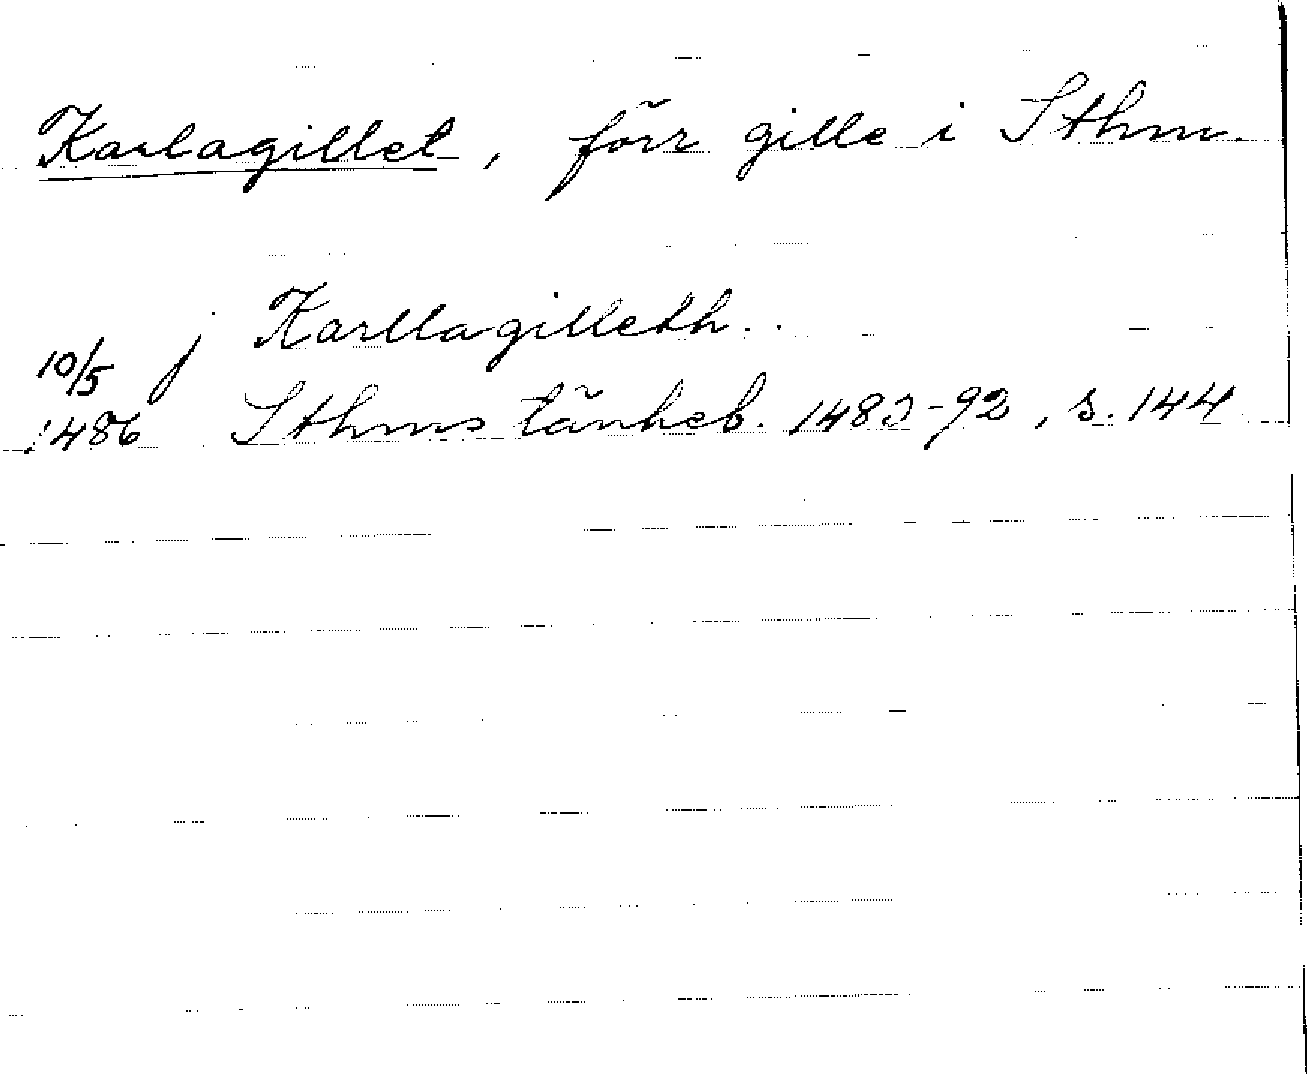 Karlagillet, förr gille i Sthm.
10/5 j Karllagilleth..
1486 Sthms tänkeb. 1483-92, s. 144